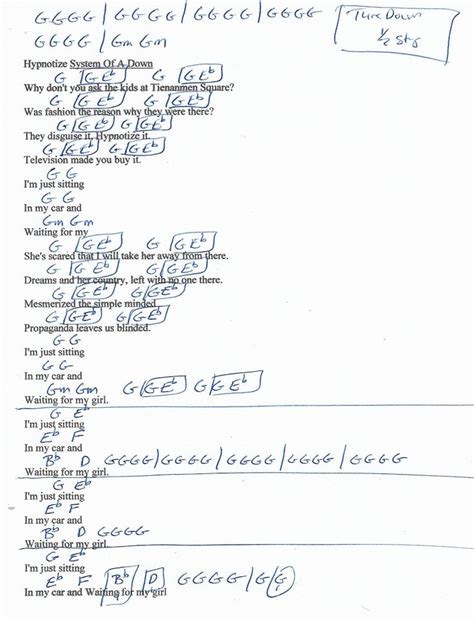 GGGG / GGGG / GGGG / GGGG
Tune Down
½ Stp
GGGG / Gm Gm
Hypnotize System Of A Down
G G E♭ G G E♭
Why don't you ask the kids at Tienanmen Square?
G G E♭ G G E♭
Was fashion the reason why they were there?
G G E♭ G G E♭
They disguise it, Hypnotize it.
G G E♭ G G E♭
Television made you buy it.
G G
I'm just sitting
G G
In my car and
Gm Gm
Waiting for my
G G E♭ G G E♭
She's scared that I will take her away from there.
G G E♭ G G E♭
Dreams and her country, left with no one there.
G G E♭ G G E♭
Mesmerized the simple minded.
G G E♭ G G E♭
Propaganda leaves us blinded.
G G
I'm just sitting
G G
In my car and
Gm Gm G G E♭ G G E♭
Waiting for my girl.
G E♭
I'm just sitting
E♭ F
In my car and
B♭ D GGGG / GGGG / GGGG / GGGG / GGGG
Waiting for my girl.
G E♭
I'm just sitting
E♭ F
In my car and
B♭ D GGGG
Waiting for my girl.
G E♭
I'm just sitting
E♭ F B♭ D GGGG / G G
In my car and Waiting for my girl